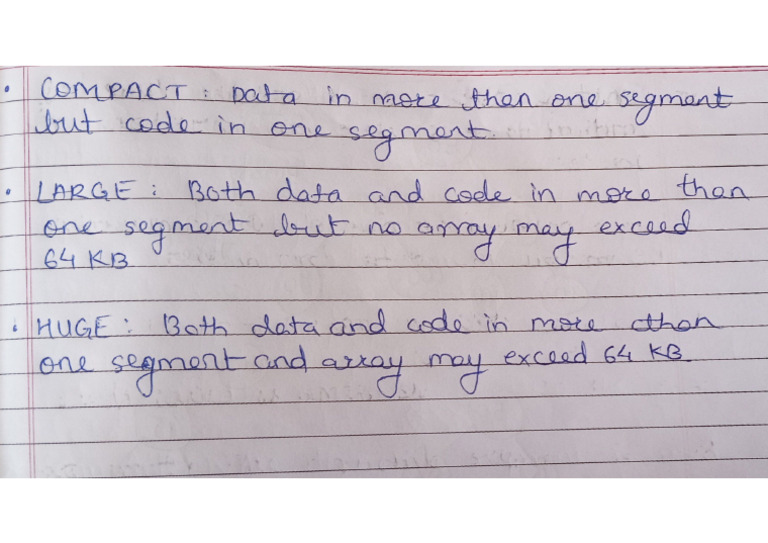 • COMPACT : Data in more than one segment
but code in one segment.
• LARGE : Both data and code in more than
one segment but no array may exceed
64 KB
• HUGE : Both data and code in more than
one segment and array may exceed 64 KB.